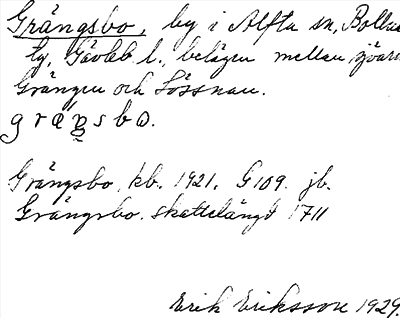 Grängsbo, by i Alfta sn, Bollnäs
tg, Gävleb l., belägen mellan sjöarna
Grängen och Lössnan.
grä́ŋsbo.
Grängsbo, kb. 1921. G 109. jb.
Grängsbo. skattelängd 1711
Erik Eriksson 1929.